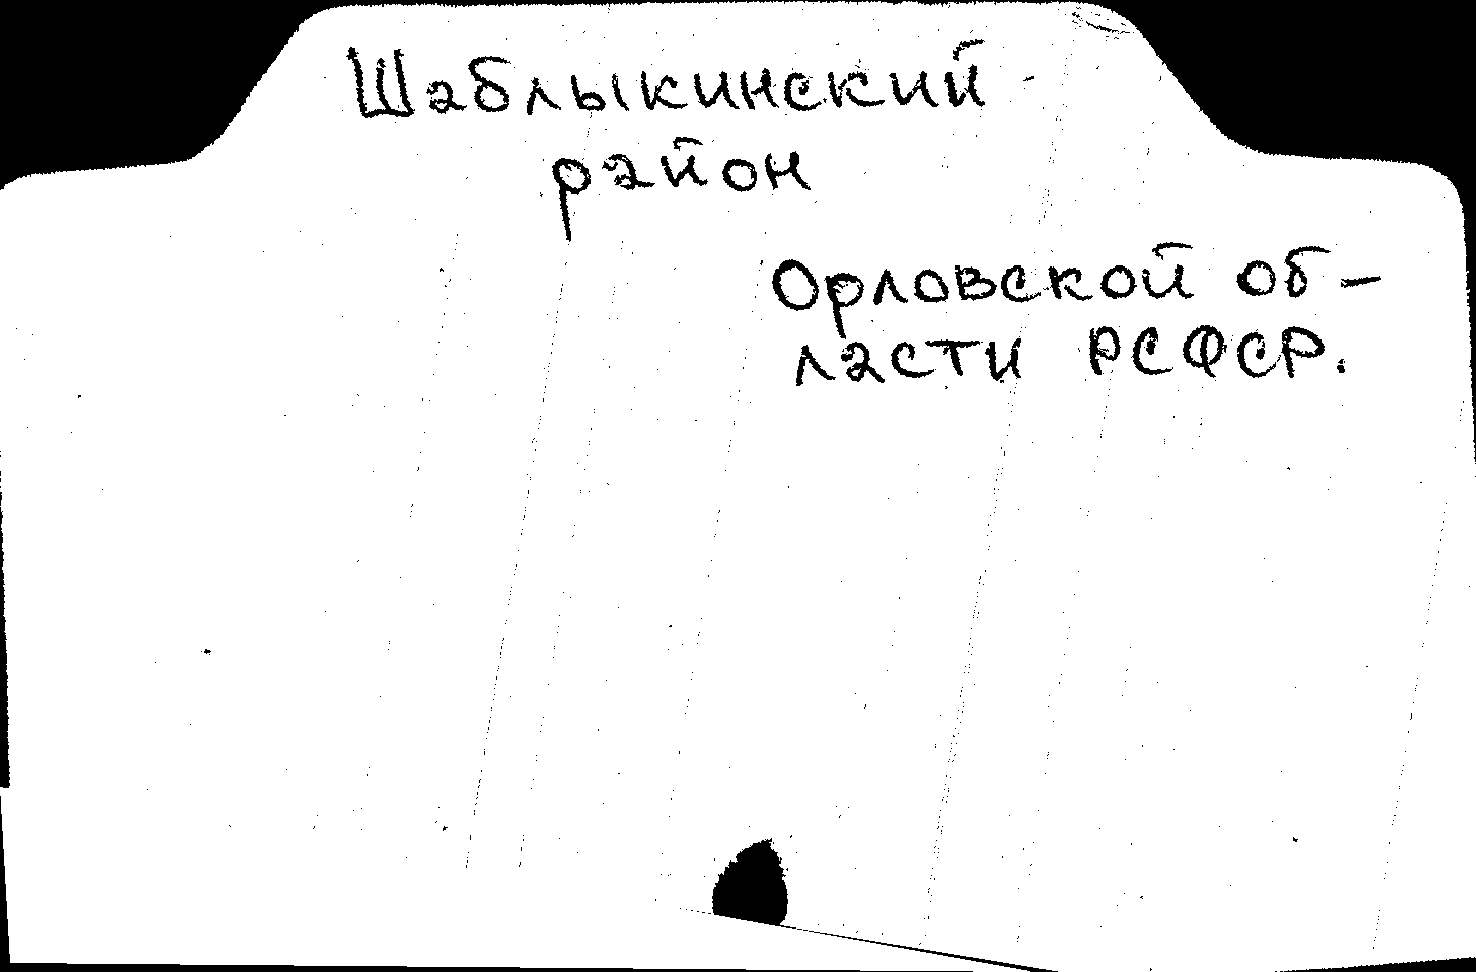 Шаблыкинский
район
Орловской об-
ласти РСФСР.